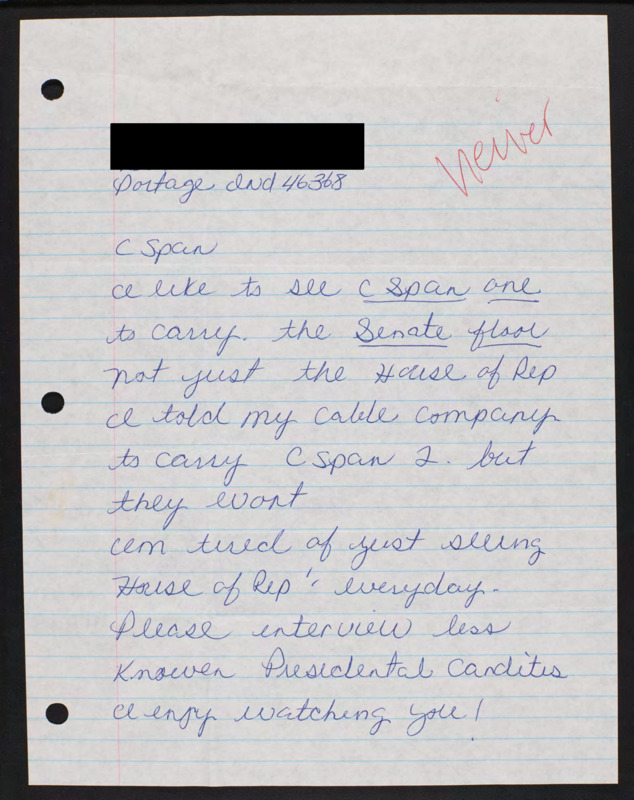 neiver
Portage Ind 46368
C Span
I like to see C Span one
to carry. the Senate floor
not just the House of Rep
I told my cable company
to carry C Span 2. but
they wont
Im tired of just seeing
House of Rep's everyday.
Please interview less
Knowen Presidental Candites
I enjy watching you!